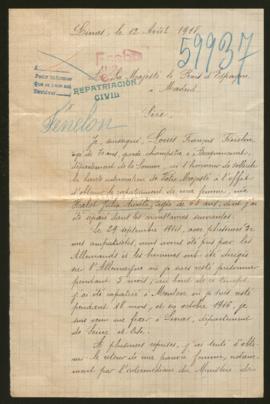 Linas, le 12 Août 1918.
59937
A Sa Majesté le Roi d'Espagne,
à Madrid.
REPATRIACIÓN
CIVIL
Fénelon
Sire,
Je, soussigné, Louis François Fénelon,
âgé de 70 ans, garde champêtre à
département de la Somme, ai l'honneur de solliciter
la haute intervention de Votre Majesté à l'effet
d'obtenir le rapatriement de ma femme, née
Julie âgée de ans, dont j'ai
été séparé dans les circonstances suivantes.
Le 29 septembre 1914, avec plusieurs de
nos compatriotes, nous avons été pris par les
Allemands et les hommes ont été dirigés
sur l'Allemagne où je suis resté prisonnier
pendant 5 mois; au bout de ce temps,
j'ai été rapatrié à où je suis resté
pendant 18 mois, et en octobre 1916, je
suis venu me fixer à Linas, département
de Seine et Oise.
A plusieurs reprises, j'ai tenté d'obte-
nir le retour de ma pauvre femme, notam-
ment par l'intermédiaire du Ministère des